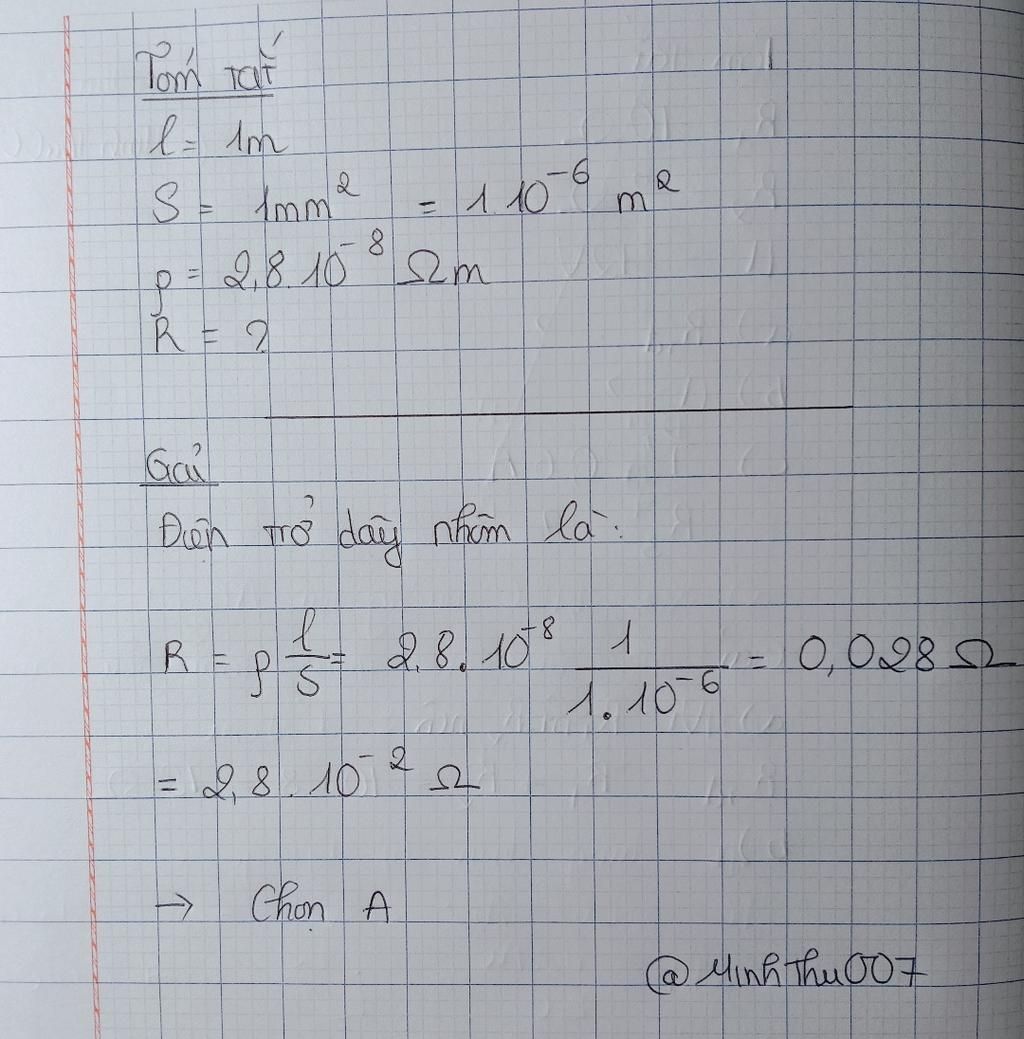 Tóm tắt
l = 1m
S = 1mm² = 1.10⁻⁶ m²
ρ = 2,8.10⁻⁸ Ωm
R = ?
Giải
Điện trở dây nhôm là:
R = ρ l/S = 2,8.10⁻⁸ 1/1.10⁻⁶ = 0,028 Ω
= 2,8.10⁻² Ω
→ Chọn A
@MinhThu007